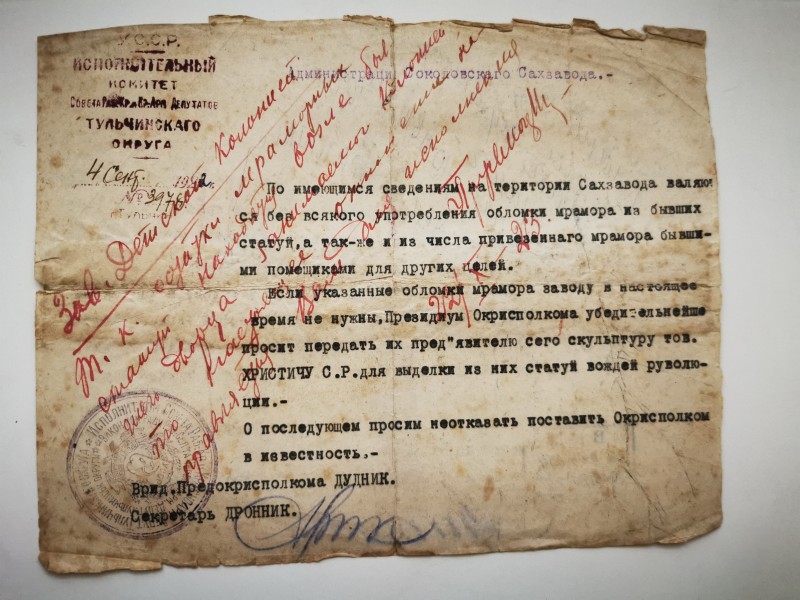 У.С.С.Р.
ИСПОЛНИТЕЛЬНЫЙ
КОМИТЕТ
СОВЕТА РАБ. КР. и КР. АРМ. ДЕПУТАТОВ
ТУЛЬЧИНСКОГО
ОКРУГА
4 Сент.
№ 3976
Администраци Соколовскаго Сахзавода.-
По имеющимся сведениям на територии Сахзавода валяют
ся без всякого употребления обломки мрамора из бывших
статуй,а так-же и из числа привезеннаго мрамора бывши-
ми помещиками для других целей.
Если указанные обломки мрамора заводу в настоящее
время не нужны,Президиум Окрисполкома убедительнейше
просит передать их пред"явителю сего скульптуру тов.
ХРИСТИЧУ С.Р.для выделки из них статуй вождей руволю-
ции.-
О последующем просим неотказать поставить Окрисполком
в известность,-
Врид.Предокрисполкома ДУДНИК.
Секретарь ДРОННИК.
Зав. Детской Колонией
Т. к. мраморных
статуй находятся возле быв.
дворца занимаемого Колонией